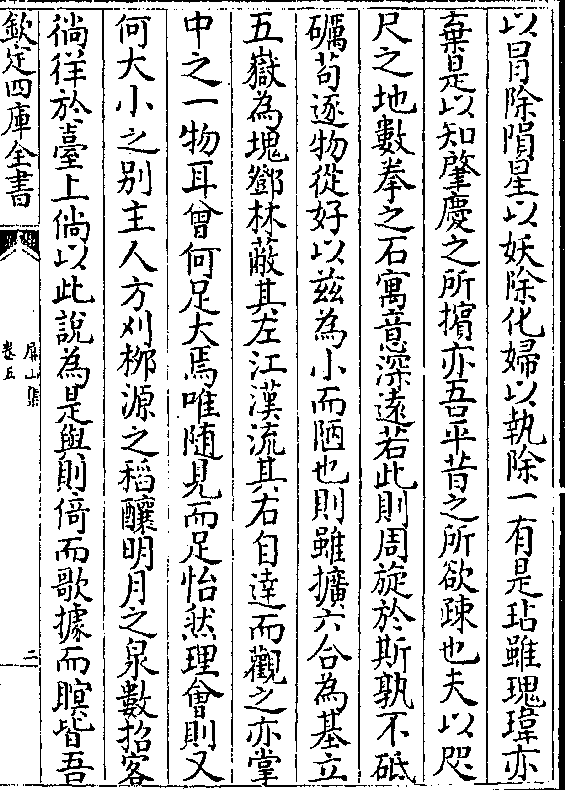 以冒除隕星以妖除化婦以執除一有是玷雖瑰瑋亦
棄是以知肇慶之所擯亦吾平昔之所欲疎也夫以咫
尺之地數拳之石寓意深遠若此則周旋於斯孰不砥
礪苟逐物從好以兹為小而陋也則雖擴六合為基立
五嶽為塊鄧林蔽其左江漢流其右自達而觀之亦掌
中之一物耳曾何足大焉唯随見而足怡然理㑹則又
何大小之别主人方刈栁源之稻釀明月之泉數招客
徜徉於臺上倘以此說為是與則倚而歌據而瞑皆吾
欽定四庫全書
屏山集
卷五
二